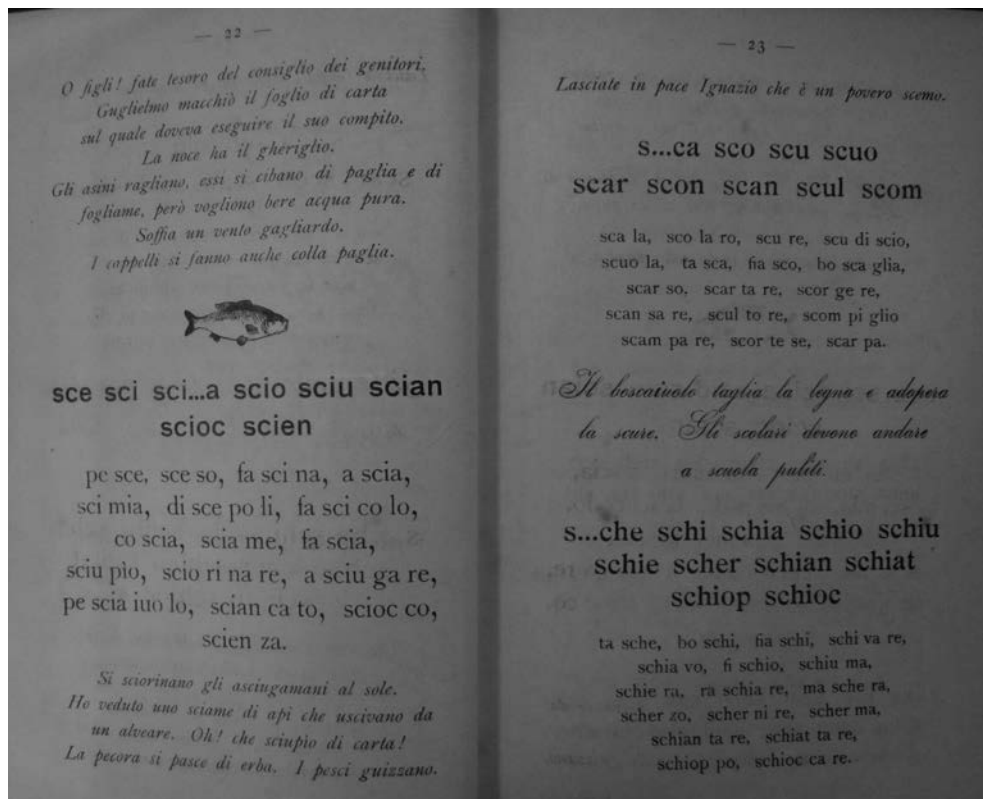 — 22 —
O figli! fate tesoro del consiglio dei genitori.
Guglielmo macchiò il foglio di carta
sul quale doveva eseguire il suo compito.
La noce ha il gheriglio.
Gli asini ragliano, essi si cibano di paglia e di
fogliame, però vogliono bere acqua pura.
Soffia un vento gagliardo.
I cappelli si fanno anche colla paglia.
sce sci sci...a scio sciu scian
scioc scien
pe sce, sce so, fa sci na, a scia,
sci mia, di sce po li, fa sci co lo,
co scia, scia me, fa scia,
sciu pìo, scio ri na re, a sciu ga re,
pe scia iuo lo, scian ca to, scioc co,
scien za.
Si sciorinano gli asciugamani al sole.
Ho veduto uno sciame di api che uscivano da
un alveare. Oh! che sciupìo di carta!
La pecora si pasce di erba. I pesci guizzano.
— 23 —
Lasciate in pace Ignazio che è un povero scemo.
s...ca sco scu scuo
scar scon scan scul scom
sca la, sco la ro, scu re, scu di scio,
scuo la, ta sca, fia sco, bo sca glia,
scar so, scar ta re, scor ge re,
scan sa re, scul to re, scom pi glio
scam pa re, scor te se, scar pa.
Il boscaiuolo taglia la legna e adopera
la scure. Gli scolari devono andare
a scuola puliti.
s...che schi schia schio schiu
schie scher schian schiat
schiop schioc
ta sche, bo schi, fia schi, schi va re,
schia vo, fi schio, schiu ma,
schie ra, ra schia re, ma sche ra,
scher zo, scher ni re, scher ma,
schian ta re, schiat ta re,
schiop po, schioc ca re.